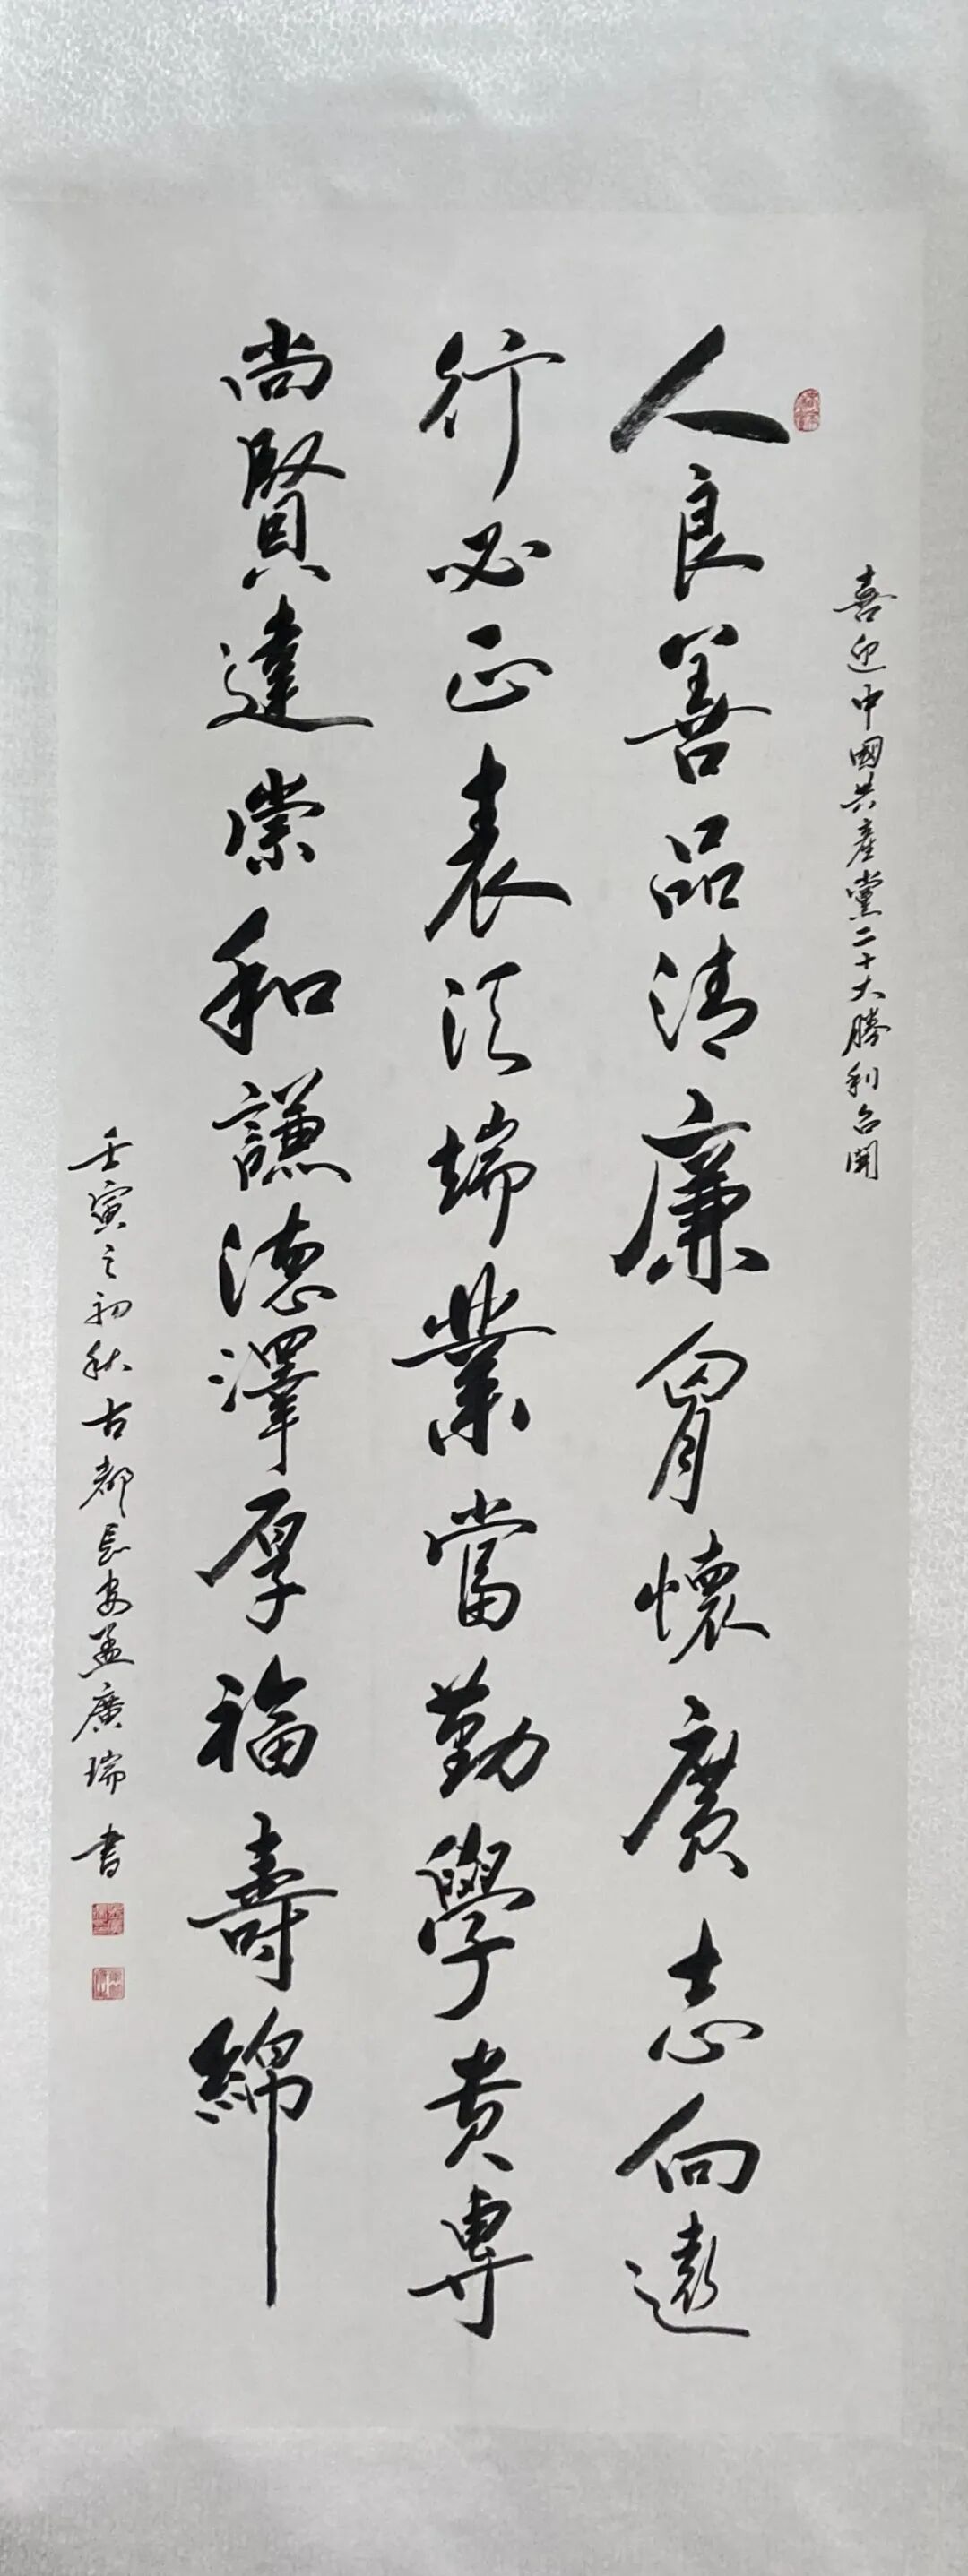 喜迎中國共產黨二十大勝利召開
人良善品清廉胷懷廣志向遠
行必正表須端業當勤學貴專
尚賢達崇和謙德澤厚福壽綿
壬寅之初秋古都長安孟廣瑞書